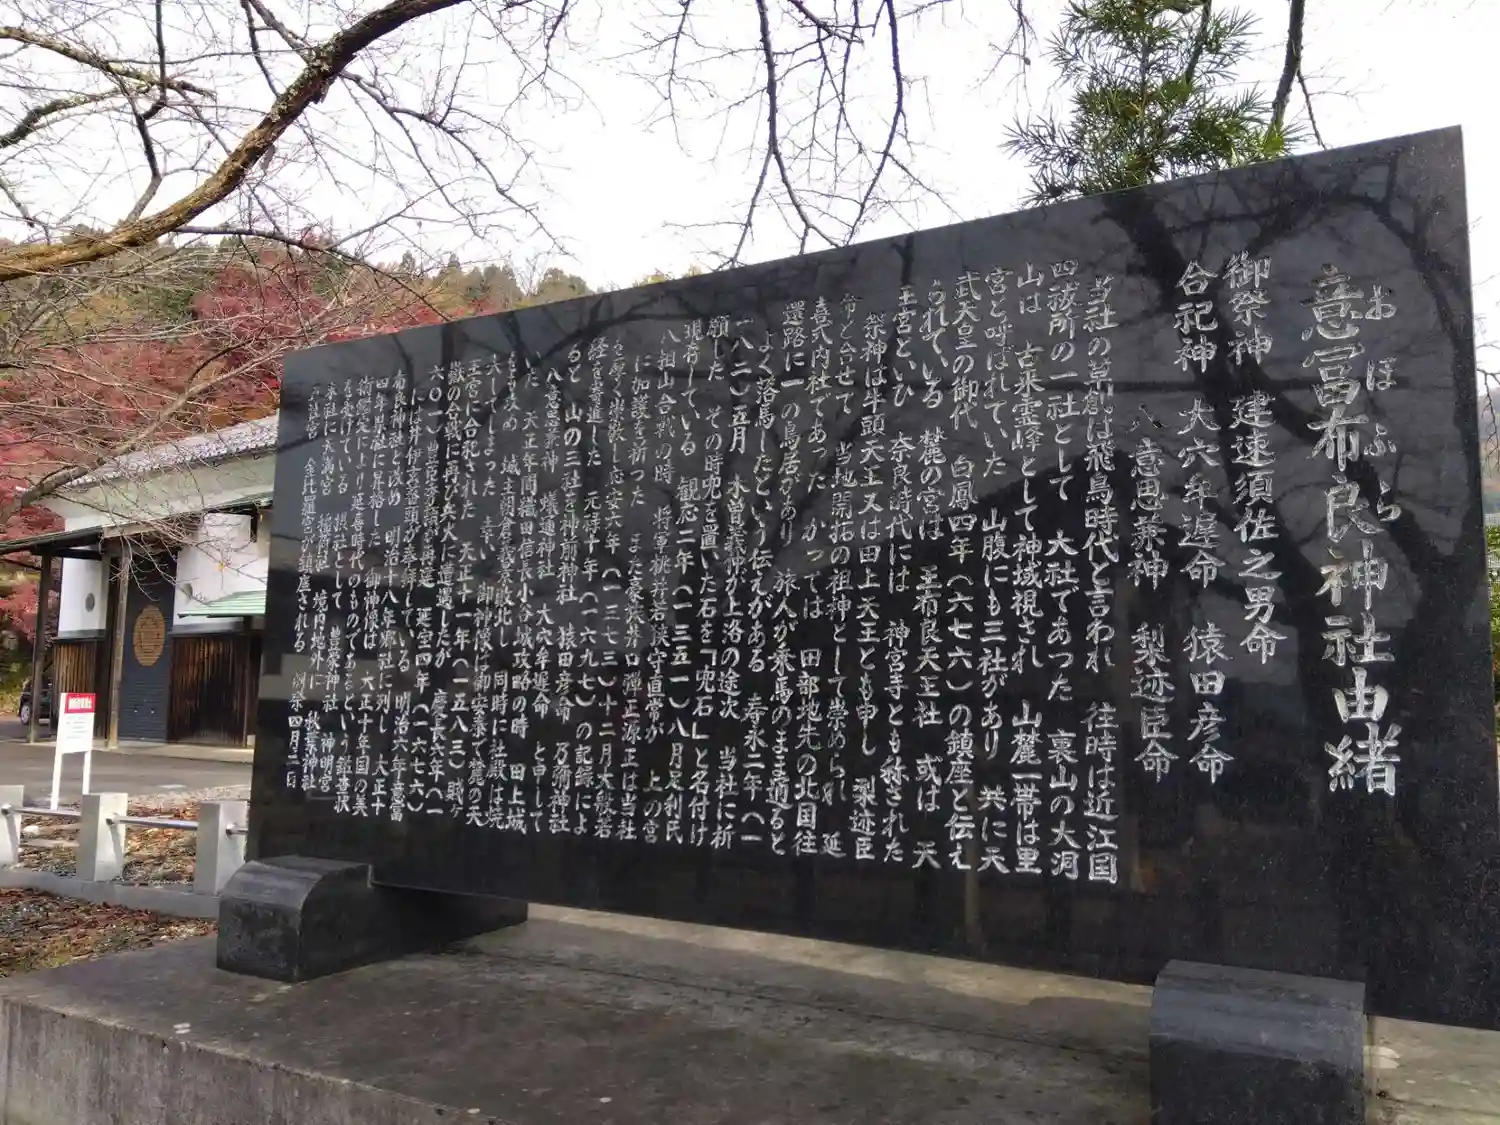 おほふら
意冨布良神社由緒
御祭神 建速須佐之男命
合祀神 大穴牟遅命 猿田彦命
八意思兼神 梨迹臣命
当社の草創は飛鳥時代と言われ 往時は近江国
四祓所の一社として 大社であった 裏山の大洞
山は 古来霊峰として神域視され 山麓一帯は里
宮と呼ばれていた 山腹にも三社があり 共に天
武天皇の御代 白鳳四年(六七六)の鎮座と伝え
られている 麓の宮は 王布良天王社 或は 天
王宮といひ 奈良時代には 神宮寺とも称された
祭神は牛頭天王又は田上天王とも申し 梨迹臣
命と併せて 当地開拓の祖神として崇められ 延
喜式内社であった かつては 田部地先の北国往
還路に一の鳥居があり 旅人が乗馬のまま通ると
よく落馬したという伝えがある 寿永二年(一
一八二)五月 木曽義仲が上洛の途次 当社に祈
願した その時呪を書いた石を「呪石」と名付け
現存している 観応二年(一三五一)八月足利氏
八相山合戦の時 将軍桃井若狭守直常が 上の宮
に加護を祈った また豪族井口弾正源正は当社
を厚く崇敬し応安六年(一三七三)十二月大般若
経を寄進した 元禄十年(一六九七)の記録によ
ると 山の三社を神所神社 猿田彦命 乃弥神社
八意思兼神 蟻通神社 大穴牟遅命 と申して
いた 天正年間織田信長小谷城攻略の時 田上城
も攻め 城主閉倉義景敗北し 同時に社殿は焼
失してしまった 幸い 御神像は御安泰で麓の天
王宮に合祀された 天正十一年(一五八三)賤ヶ
嶽の合戦に再び兵火に遭遇したが 慶長六年(一
六〇一)当社を再建 延宝四年(一六七六)
に 井伊宮 頭が奉拝している 明治六年意冨
布良神社と改め 明治十八年郷社に列し 大正十
四年県社に昇格した 御神像は 大正十年国の美
術鑑定により延喜時代のものであるという証状
を受けている 摂社として 豊栄神社 神明宮
末社に天満宮 稲荷社 境内地外に 秋葉神社
八幡社宮 金比羅宮が鎮座される 例祭四月三日